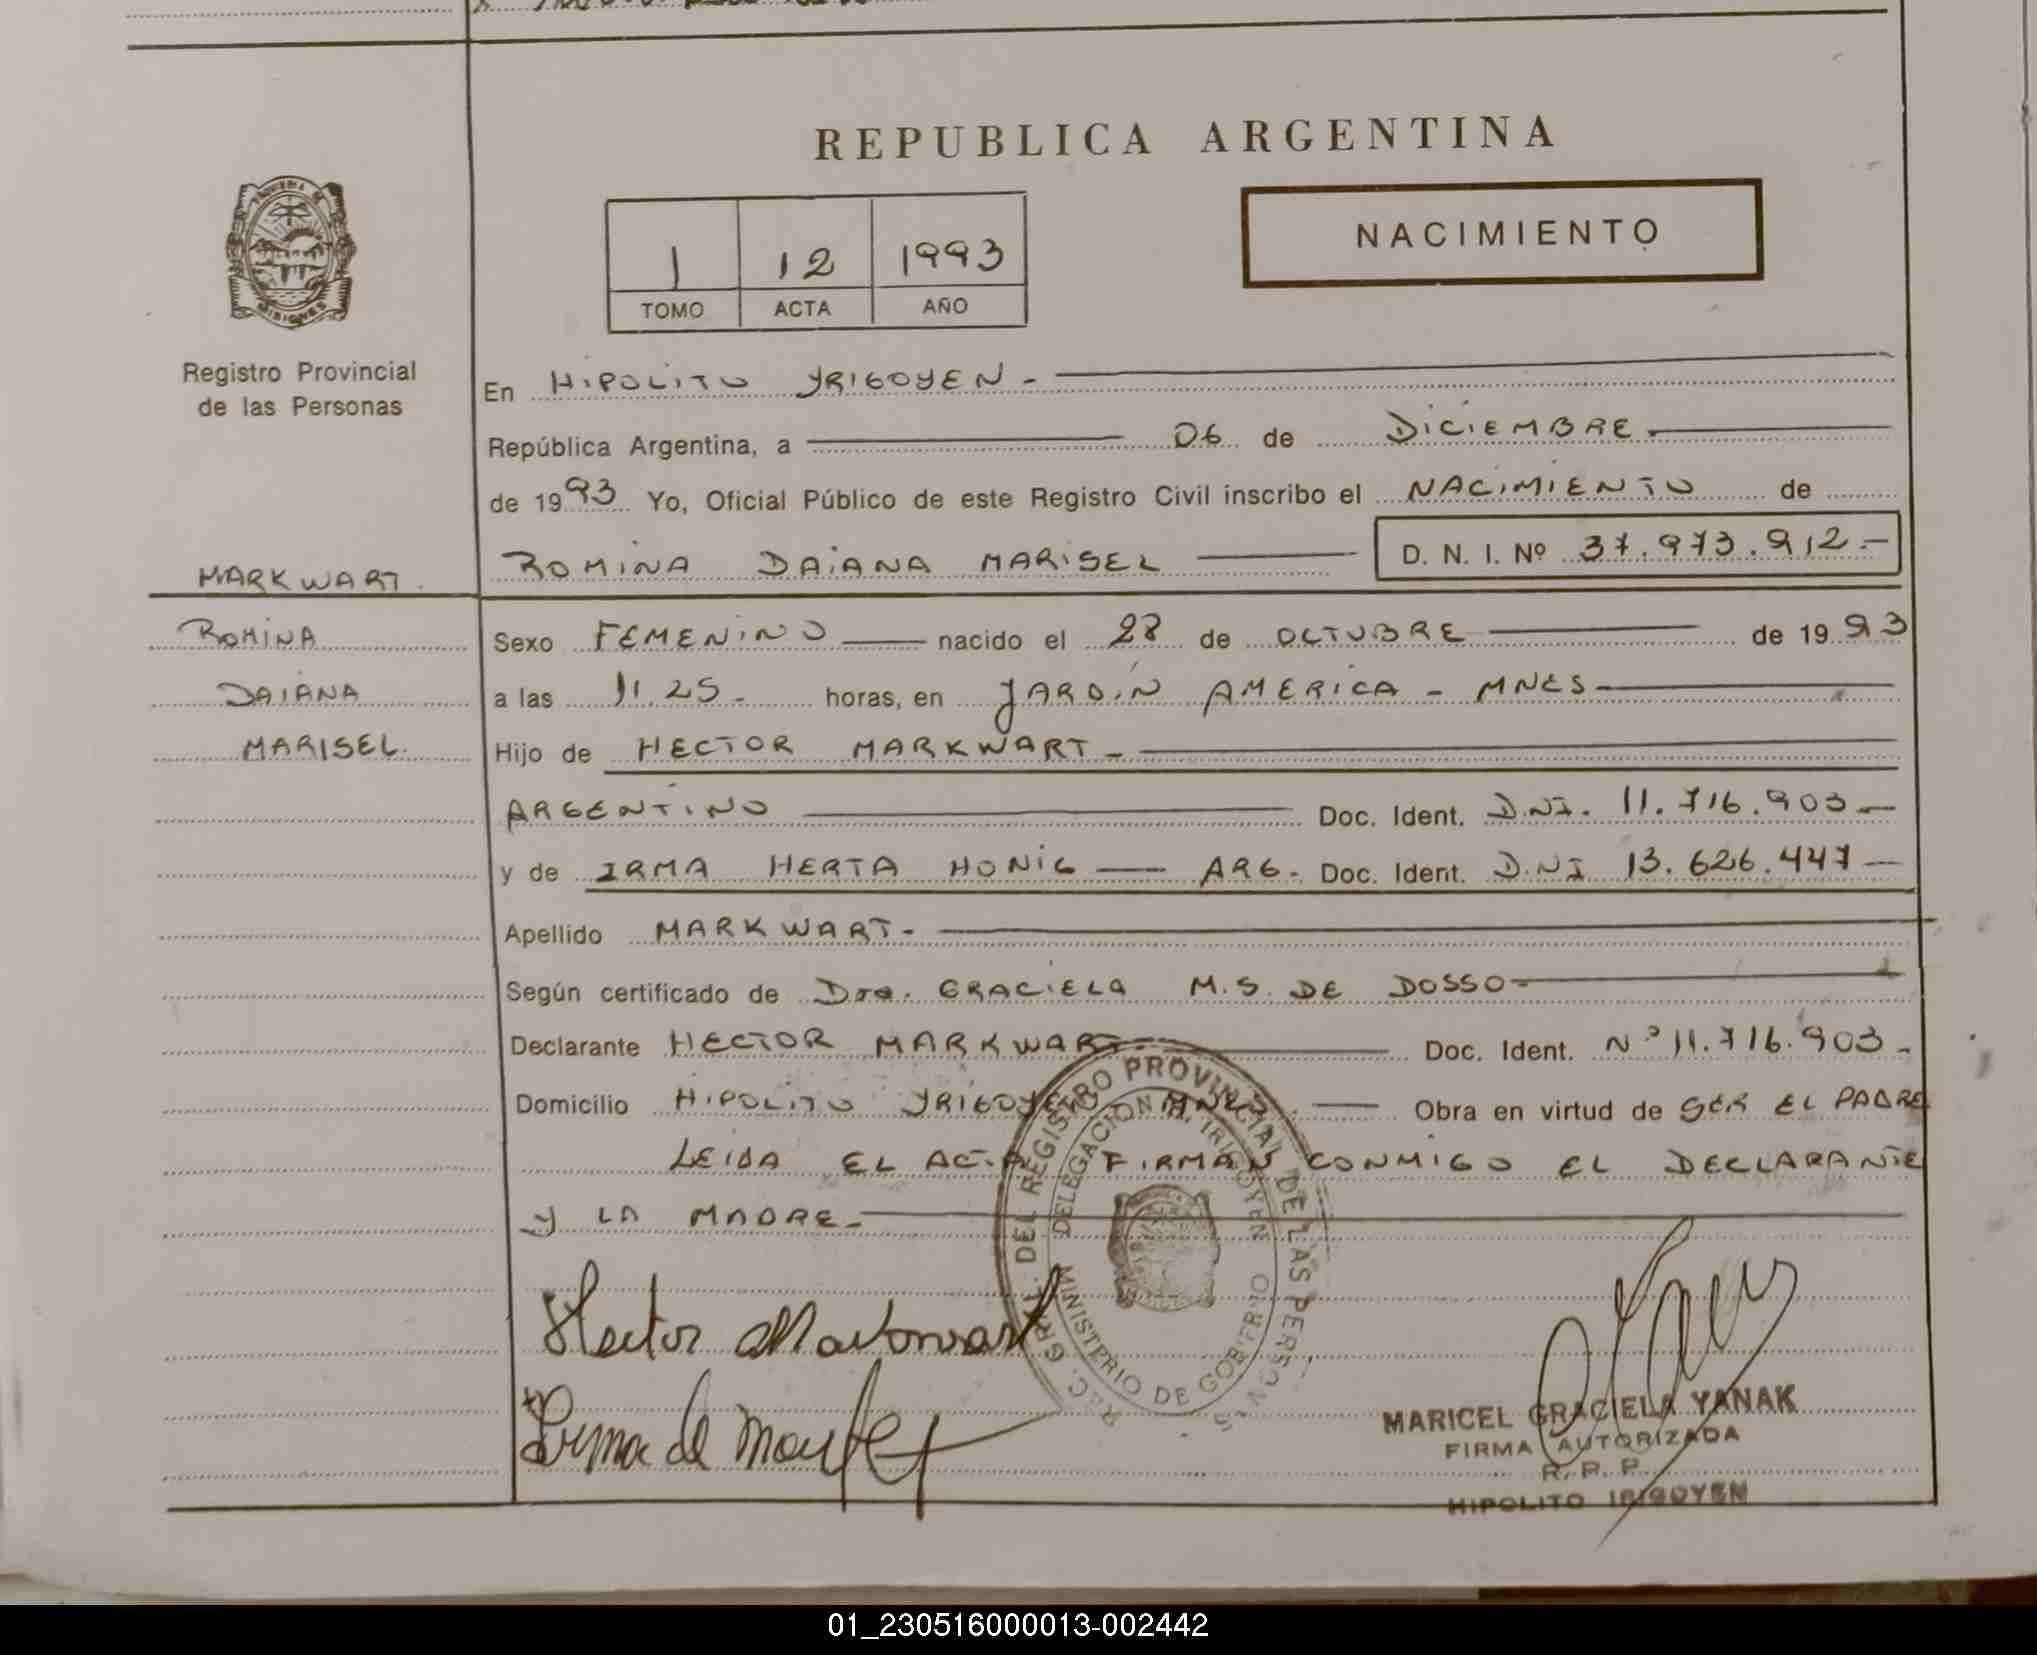 REPUBLICA ARGENTINA
NACIMIENTO
1 12 1993
TOMO ACTA AÑO
Registro Provincial
de las Personas
En HIPOLITO YRIGOYEN -
República Argentina, a 06 de DICIEMBRE
de 1993 Yo, Oficial Público de este Registro Civil inscribo el NACIMIENTO de
ROMINA DAIANA MARISEL D. N. I. Nº 37.973.912.-
MARKWART.
ROMINA
DAIANA
MARISEL.
Sexo FEMENINO nacido el 28 de OCTUBRE de 1993
a las 11.25- horas, en JARDIN AMERICA - MNES
Hijo de HECTOR MARKWART -
ARGENTINO Doc. Ident. D.NI. 11.716.903-
y de IRMA HERTA HONIG ARG. Doc. Ident. D.NI 13.626.447
Apellido MARKWART.
Según certificado de Dra. GRACIELA M.S. DE DOSSO
Declarante HECTOR MARKWART Doc. Ident. Nº 11.716.903-
Domicilio HIPOLITO YRIGOYEN MNES. Obra en virtud de SER EL PADRE
LEIDA EL ACTA FIRMAN CONMIGO EL DECLARANTE
Y LA MADRE-
GRAL. DEL REGISTRO PROVINCIAL DE LAS PERSONAS
DELEGACION H. IRIGOYEN
MINISTERIO DE GOBIERNO
Hector Markwart
Irma de
MARICEL GRACIELA YANAK
FIRMA AUTORIZADA
R. P. P.
HIPOLITO IRIGOYEN
01_230516000013-002442